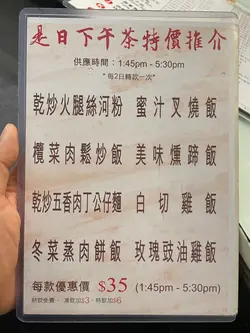 是日下午茶特價推介
供應時間：1:45pm - 5:30pm
"每2日轉款一次"
乾炒火腿絲河粉 蜜汁叉燒飯
欖菜肉鬆炒飯 美味燻蹄飯
乾炒五香肉丁公仔麵 白切雞飯
冬菜蒸肉餅飯 玫瑰豉油雞飯
每款優惠價 $35 (1:45pm - 5:30pm)
餅飲免費‧凍飲加$3‧特飲加$6